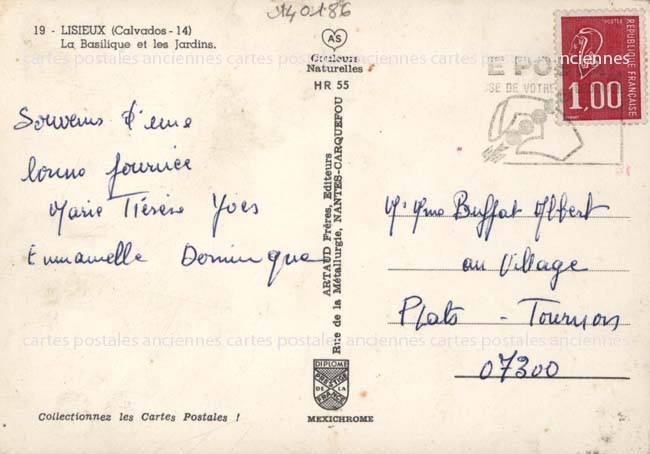 140186
19 - LISIEUX (Calvados - 14)
La Basilique et les Jardins.
AS
Couleurs
Naturelles
HR 55
E POS
SE DE VOTRE
POSTES
REPUBLIQUE FRANÇAISE
1,00
cartes postales anciennes cartes postales anciennes cartes postales anciennes
Souvenis d'eme
bonne journée
Marie Térèse Yves
Emmanuelle Dominique
ARTAUD Frères, Editeurs
Rue de la Métallurgie, NANTES-CARQUEFOU
Mr Mme Buffat Albert
au Village
Plats - Tournon
07300
cartes postales anciennes cartes postales anciennes cartes postales anciennes
cartes postales anciennes cartes postales anciennes cartes postales anciennes
DIPLOME
PRESTIGE
DE LA
FRANCE
MEXICHROME
Collectionnez les Cartes Postales !